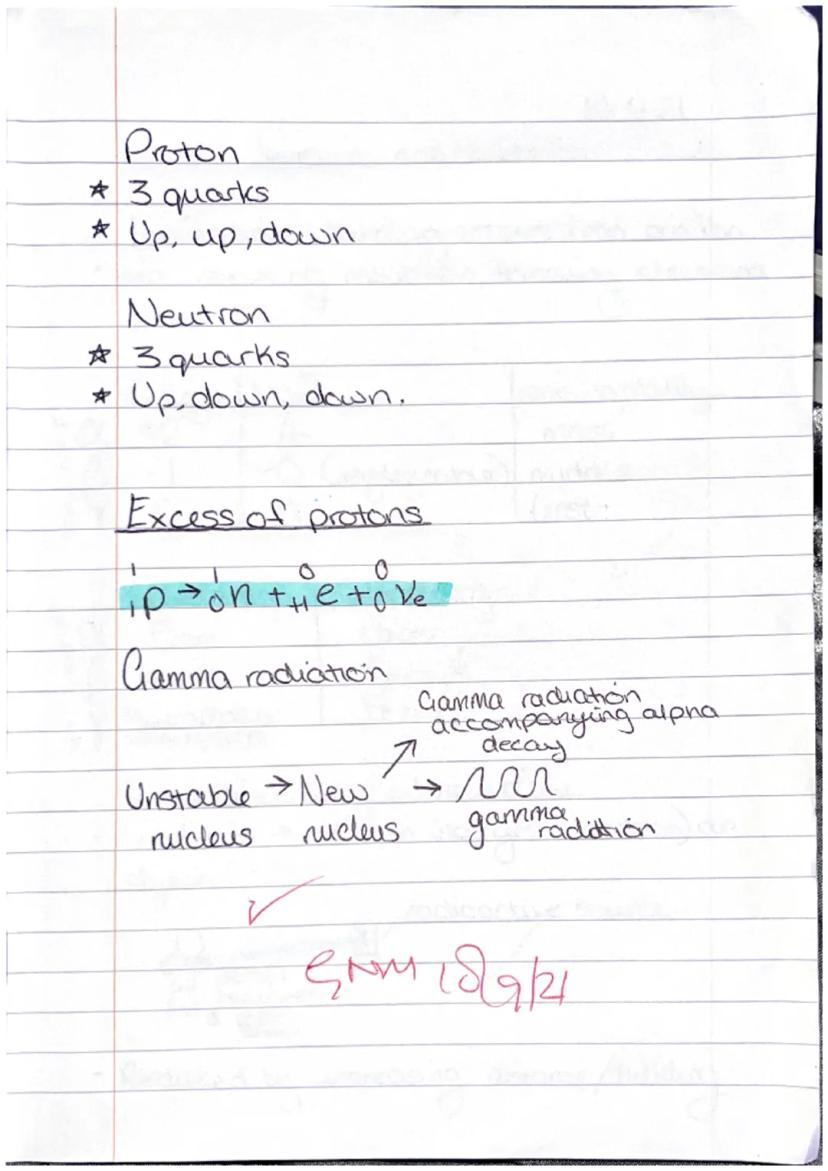 Proton
* 3 quarks
* Up, up, down
Neutron
* 3 quarks
* Up, down, down.
Excess of protons
¹₁p → ¹₀n + ⁰₊₁e + ⁰₀νe
Gamma radiation
Gamma radiation
accompanying alpha
decay
Unstable → New →
nucleus nucleus gamma
radiation